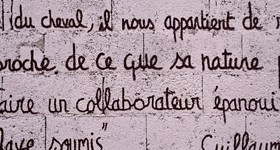 du cheval, il nous appartient de
proche de ce que sa nature
faire un collaborateur épanoui
soumis" Guillaum